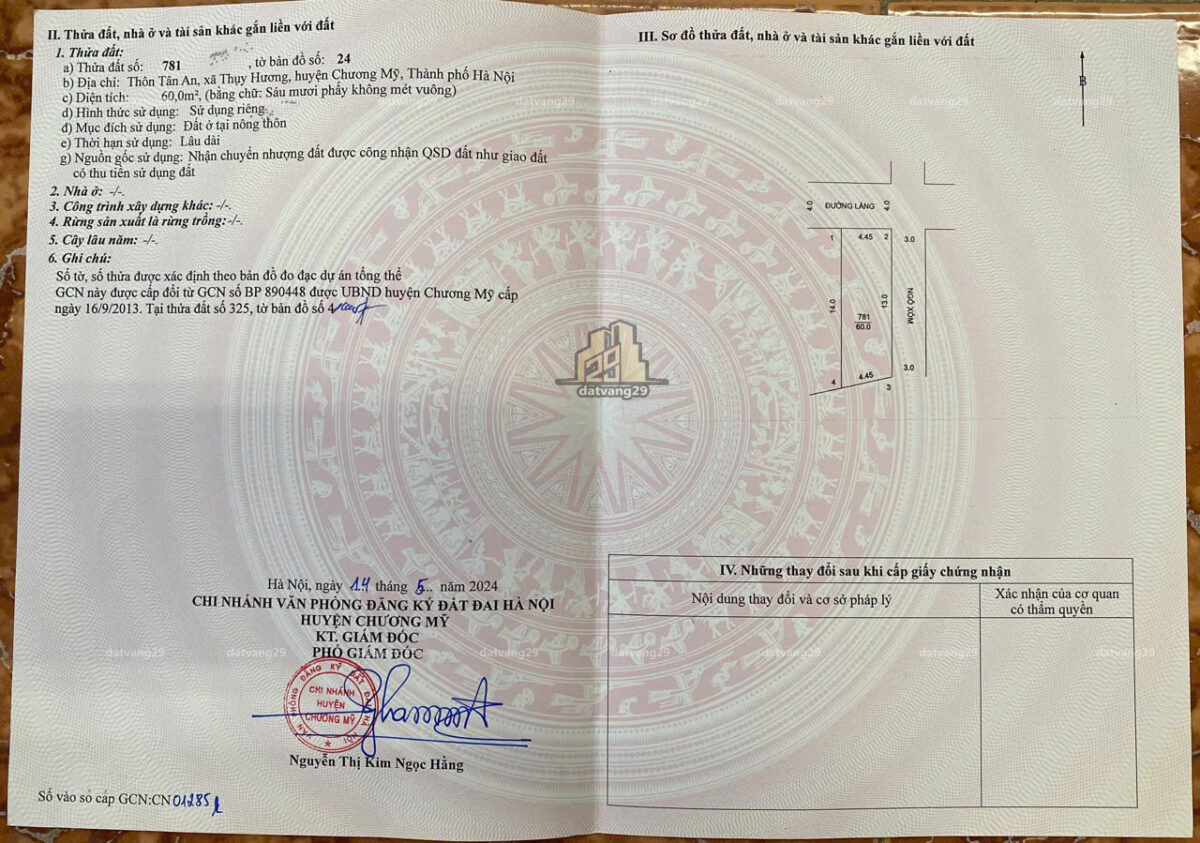 II. Thửa đất, nhà ở và tài sản khác gắn liền với đất
1. Thửa đất:
a) Thửa đất số: 781 , tờ bản đồ số: 24
b) Địa chỉ: Thôn Tân An, xã Thụy Hương, huyện Chương Mỹ, Thành phố Hà Nội
c) Diện tích: 60,0m², (bằng chữ: Sáu mươi phẩy không mét vuông)
d) Hình thức sử dụng: Sử dụng riêng
đ) Mục đích sử dụng: Đất ở tại nông thôn
e) Thời hạn sử dụng: Lâu dài
g) Nguồn gốc sử dụng: Nhận chuyển nhượng đất được công nhận QSD đất như giao đất
có thu tiền sử dụng đất
2. Nhà ở: -/-.
3. Công trình xây dựng khác: -/-.
4. Rừng sản xuất là rừng trồng:-/-.
5. Cây lâu năm: -/-.
6. Ghi chú:
Số tờ, số thửa được xác định theo bản đồ đo đạc dự án tổng thể
GCN này được cấp đổi từ GCN số BP 890448 được UBND huyện Chương Mỹ cấp
ngày 16/9/2013. Tại thửa đất số 325, tờ bản đồ số 4
Hà Nội, ngày 14 tháng 5... năm 2024
CHI NHÁNH VĂN PHÒNG ĐĂNG KÝ ĐẤT ĐAI HÀ NỘI
HUYỆN CHƯƠNG MỸ
KT. GIÁM ĐỐC
PHÓ GIÁM ĐỐC
VĂN PHÒNG ĐĂNG KÝ ĐẤT ĐAI HÀ NỘI
CHI NHÁNH
HUYỆN
CHƯƠNG MỸ
Nguyễn Thị Kim Ngọc Hằng
Số vào sổ cấp GCN:CN 01285
III. Sơ đồ thửa đất, nhà ở và tài sản khác gắn liền với đất
B
4.0 ĐƯỜNG LÀNG 4.0
1 4.45 2 3.0
14.0 13.0 NGÕ XÓM
781
60.0
3.0
4 4.45 3
IV. Những thay đổi sau khi cấp giấy chứng nhận
Nội dung thay đổi và cơ sở pháp lý
Xác nhận của cơ quan
có thẩm quyền
29
datvang29
datvang29
datvang29
datvang29
datvang29
datvang29
datvang29
datvang29
datvang29
datvang29
datvang29